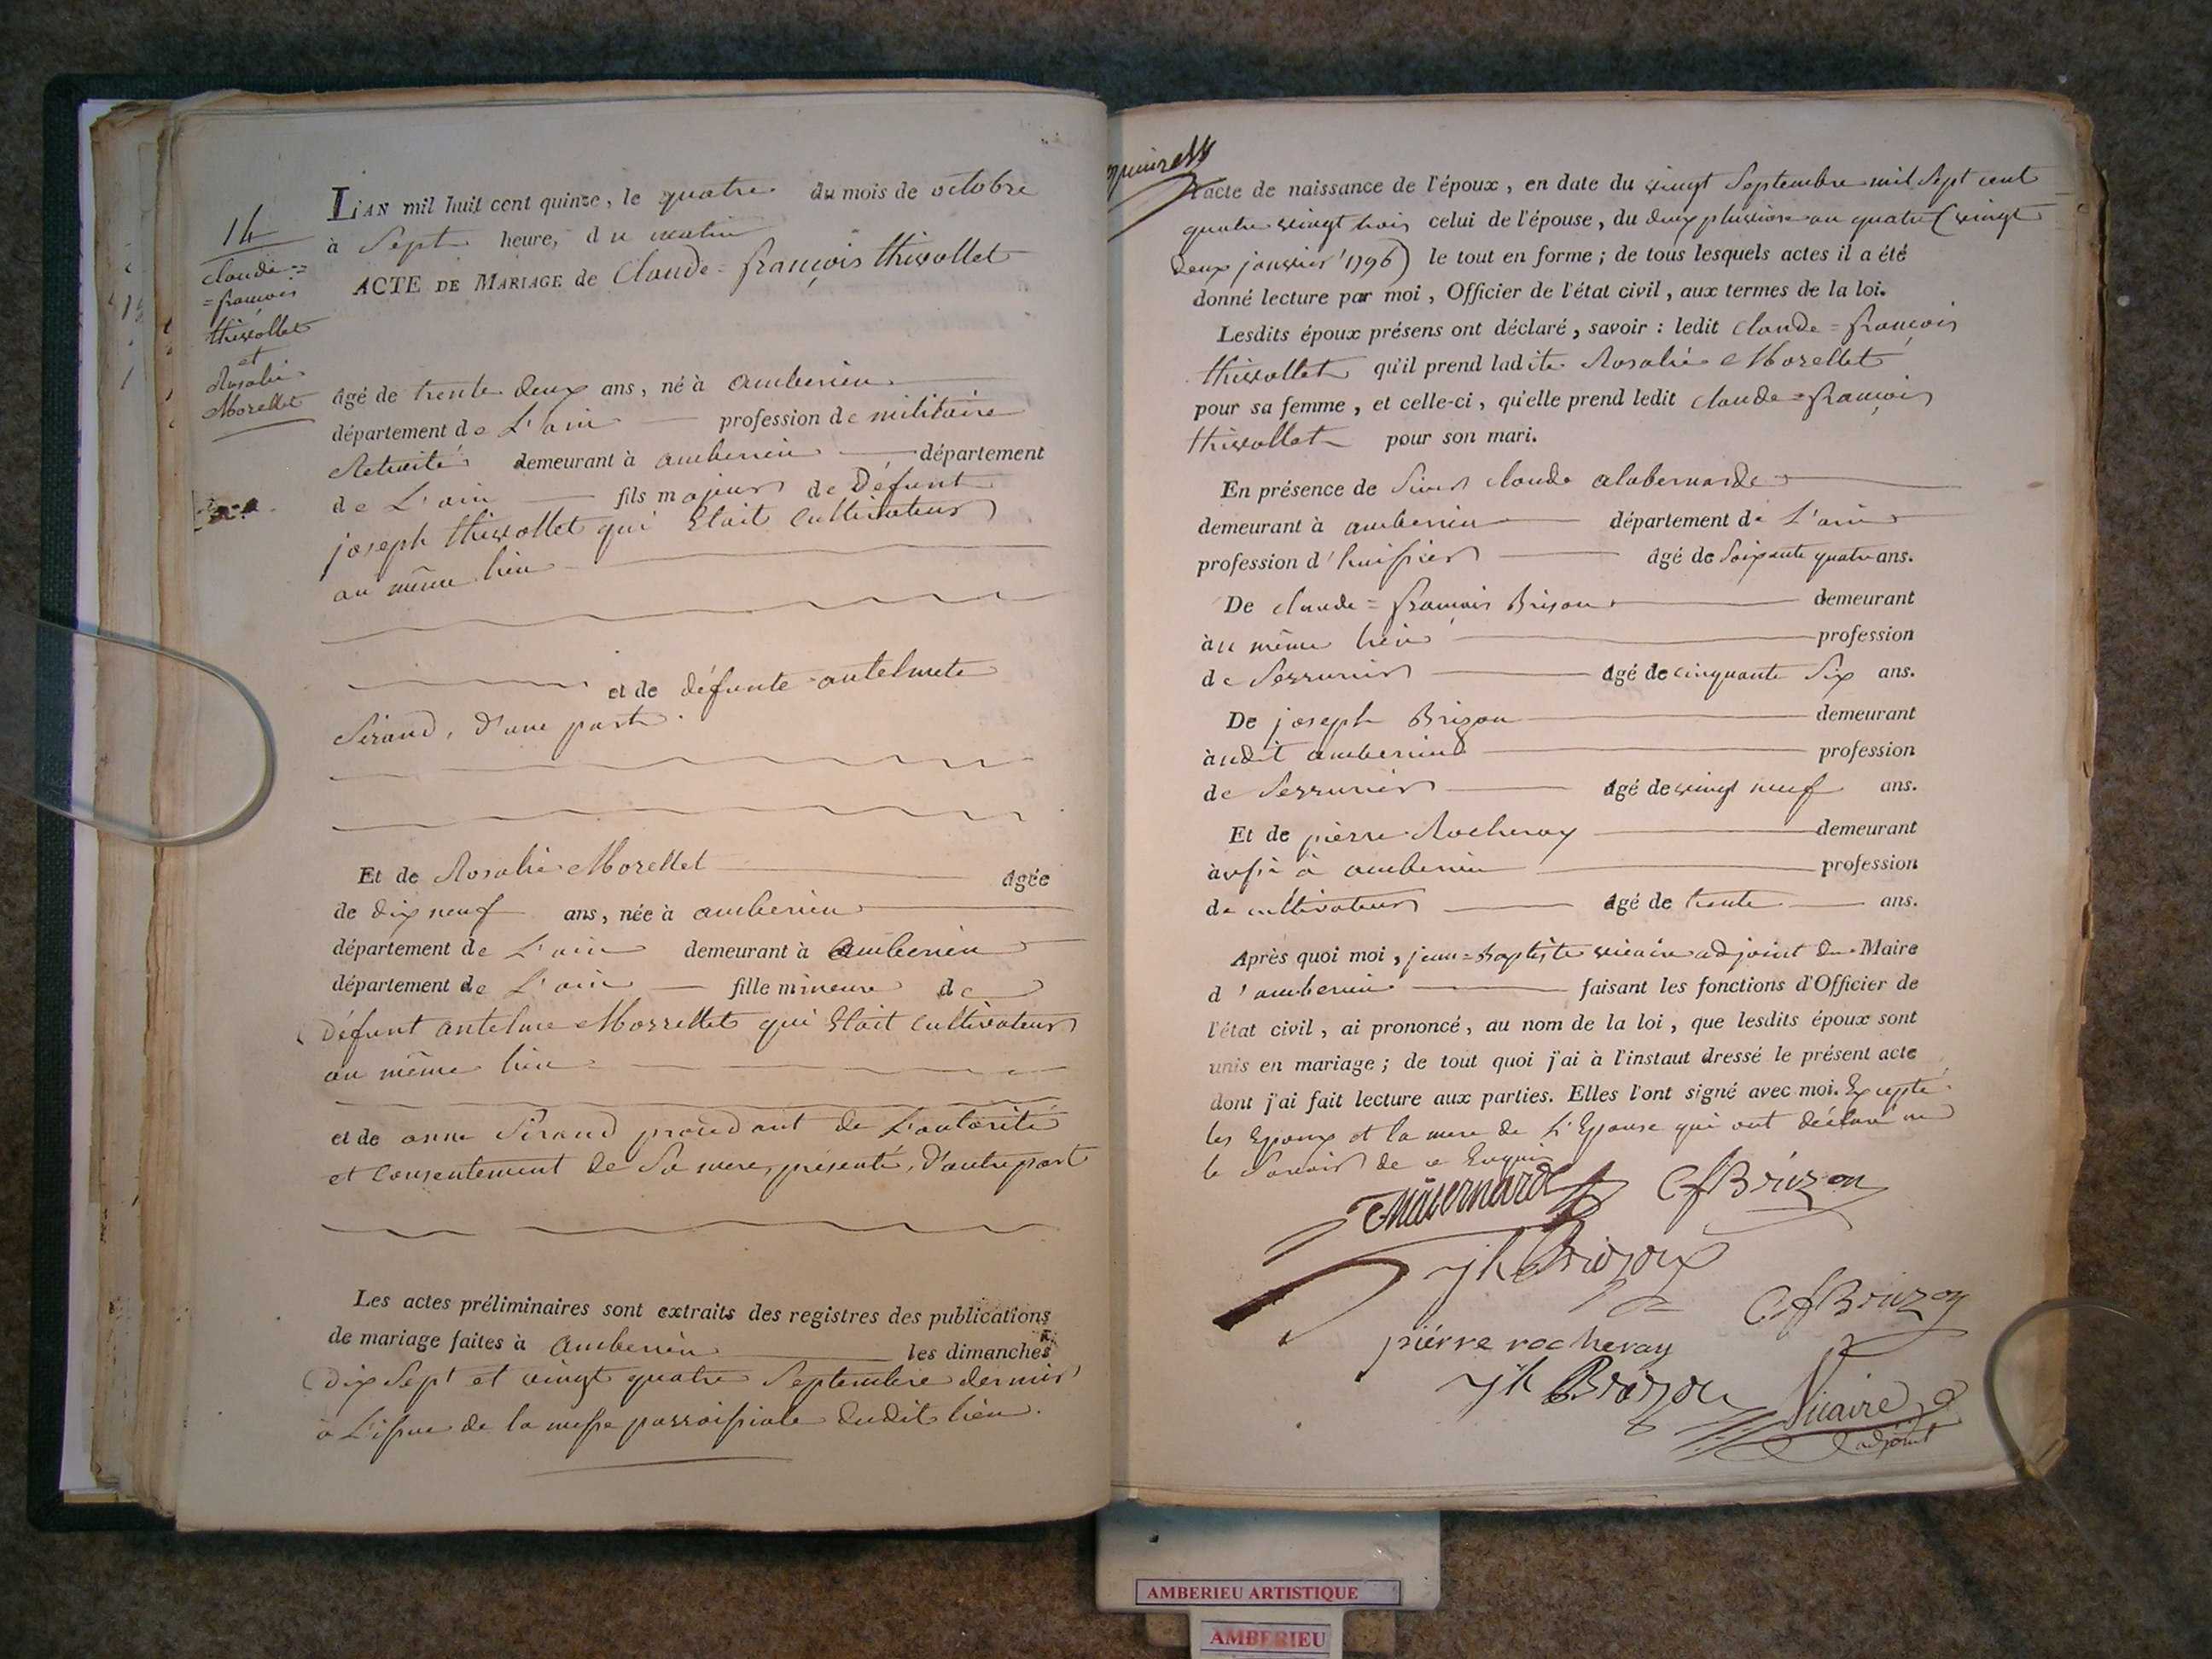 14
claude =
= françois
thivollet
et
Rosalie
Morellet
L'AN mil huit cent quinze, le quatre du mois de octobre
à Sept heure, du matin
ACTE DE MARIAGE de Claude = françois thivollet
âgé de trente deux ans, né à amberieu
département de L'ain profession de militaire
Retraité demeurant à amberieu département
de L'ain fils majeur de Défunt
joseph thivollet qui Etait Cultivateur
au même lieu
et de défunte antelmete
Sirand, d'une part.
Et de Rosalie Morellet âgée
de dix neuf ans, née à amberieu
département de L'ain demeurant à amberieu
département de L'ain fille mineure de
Défunt antelme Morrellet qui Etait Cultivateur
au même lieu
et de anne Sirand procédant de L'autorité
et Consentement de Sa mere, présente, D'autre part
Les actes préliminaires sont extraits des registres des publications
de mariage faites à amberieu les dimanches
Dix Sept et vingt quatre Septembre dernier
à L'issue de la messe parroissiale dudit lieu.
l'acte de naissance de l'époux, en date du vingt Septembre mil Sept cent
quatre vingt trois celui de l'épouse, du deux pluviose an quatre (vingt
deux janvier 1796) le tout en forme ; de tous lesquels actes il a été
donné lecture par moi, Officier de l'état civil, aux termes de la loi.
Lesdits époux présens ont déclaré, savoir : ledit Claude = françois
thivollet qu'il prend ladite Rosalie Morellet
pour sa femme, et celle-ci, qu'elle prend ledit claude = françois
thivollet pour son mari.
En présence de Sieur claude alabernarde
demeurant à amberieu département de L'ain
profession d'huissier âgé de Soixante quatre ans.
De claude = françois Brison demeurant
au même lieu profession
de Serrurier âgé de cinquante Six ans.
De joseph Brizon demeurant
audit amberieu profession
de Serrurier âgé de vingt neuf ans.
Et de pierre Rocheray demeurant
aussi à amberieu profession
de cultivateur âgé de trente ans.
Après quoi moi, jean = Baptiste vicaire adjoint du Maire
d'amberieu faisant les fonctions d'Officier de
l'état civil, ai prononcé, au nom de la loi, que lesdits époux sont
unis en mariage ; de tout quoi j'ai à l'instaut dressé le présent acte
dont j'ai fait lecture aux parties. Elles l'ont signé avec moi. Excepté
les Epoux et la mere de L'Epouse qui ont déclaré ne
le Savoir de ce Enquis
CfBrizon
jh Brizon
CfBrizon
piérre rocheray
jh Brizon
Vicaire
adjoint
AMBERIEU ARTISTIQUE
AMBERIEU